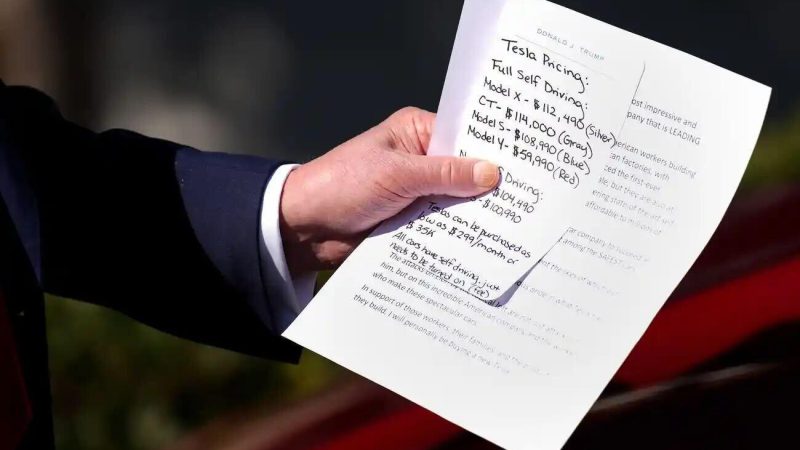 DONALD J. TRUMP
Tesla Pricing:
Full Self Driving:
Model X - $112,490 (Silver)
CT - $114,000 (Gray)
Model S - $108,990 (Blue)
Model Y - $59,990 (Red)
Driving:
$104,490
$100,990
Teslas can be purchased as
low as $299/month or
$35K
All cars have self driving, just
needs to be turned on
ost impressive and
pany that is LEADING
erican workers building
an factories, with
ced the first-ever
le, but they are also at
ering state of the art and
affordable to millions of
car company to succeed in
among the SAFEST
The attacks
him, but on this incredible American company, and the workers
who make these spectacular cars.
In support of those workers, their families, and the
they build, I will personally be buying a new Tesla